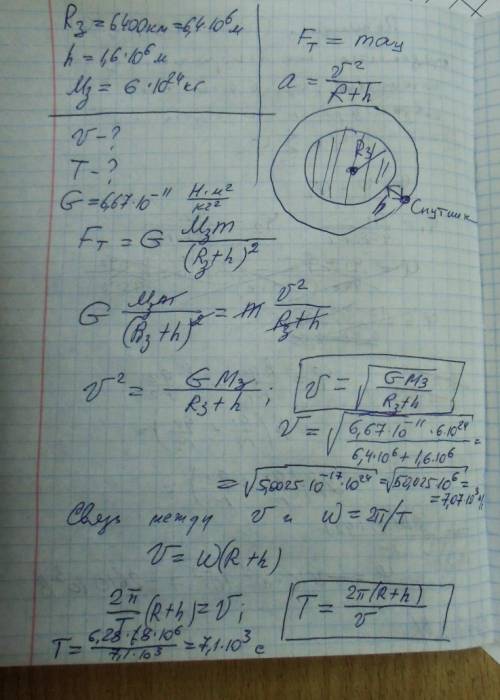 Rз = 6400км = 6,4·10⁶ м
h = 1,6·10⁶ м
Mз = 6·10²⁴ кг
Fт = maц
a = v²/(R+h)
v - ?
T - ?
G = 6,67·10⁻¹¹ Н·м²/кг²
Rз
h
Спутник
Fт = G Mзm/(Rз+h)²
G Mзm/(Rз+h)² = m v²/(Rз+h)
v² = GMз/(Rз+h); v = √(GMз/(Rз+h))
v = √((6,67·10⁻¹¹·6·10²⁴)/(6,4·10⁶+1,6·10⁶)) =
= √(5,0025·10⁻¹⁷·10²⁴) = √(50,025·10⁶) =
= 7,07·10³ м/с
Связь между v и w = 2π/T
v = w(R+h)
2π/T (R+h) = v; T = 2π(R+h)/v
T = 6,28·8·10⁶/7,1·10³ = 7,1·10³ с